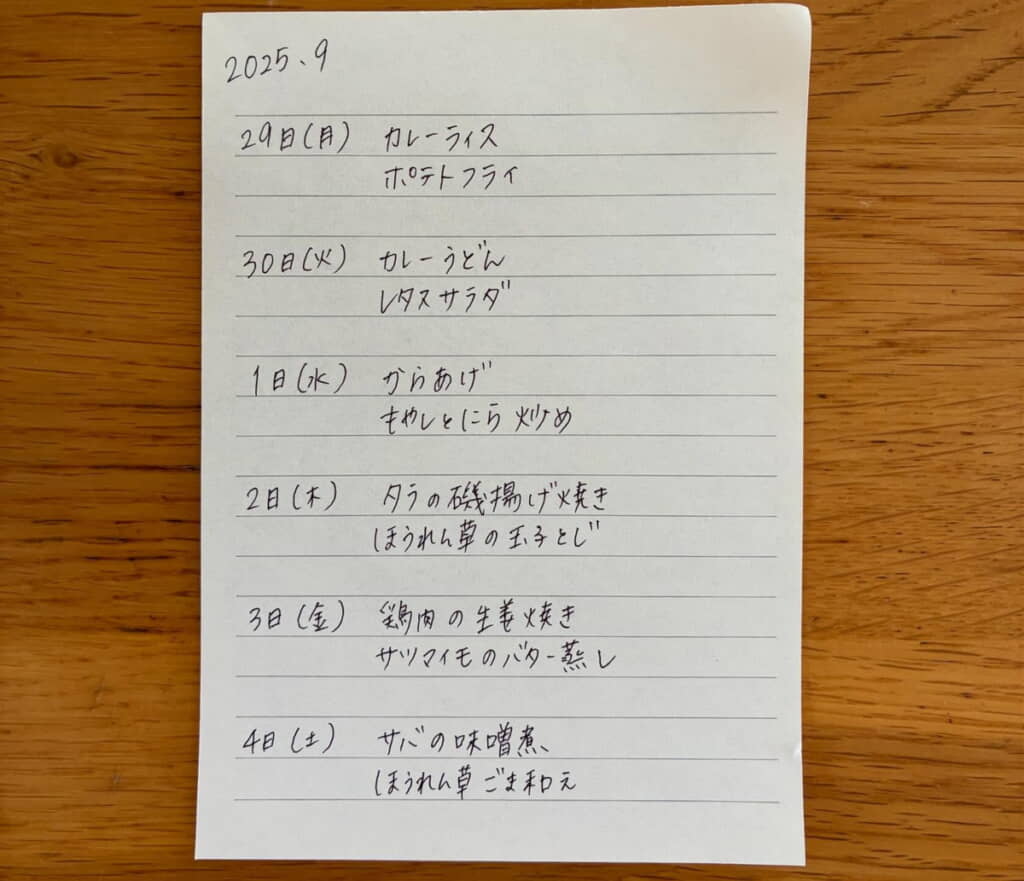 2025.9
29日(月) カレーライス
ポテトフライ
30日(火) カレーうどん
レタスサラダ
1日(水) からあげ
もやしとにら炒め
2日(木) タラの磯揚げ焼き
ほうれん草の玉子とじ
3日(金) 鶏肉の生姜焼き
サツマイモのバター蒸し
4日(土) サバの味噌煮、
ほうれん草ごま和え